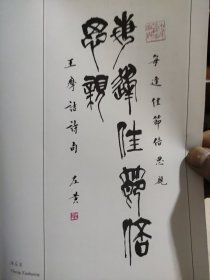 每逢佳節倍思親
每逢佳節倍
思親
王摩詰詩句 左黃